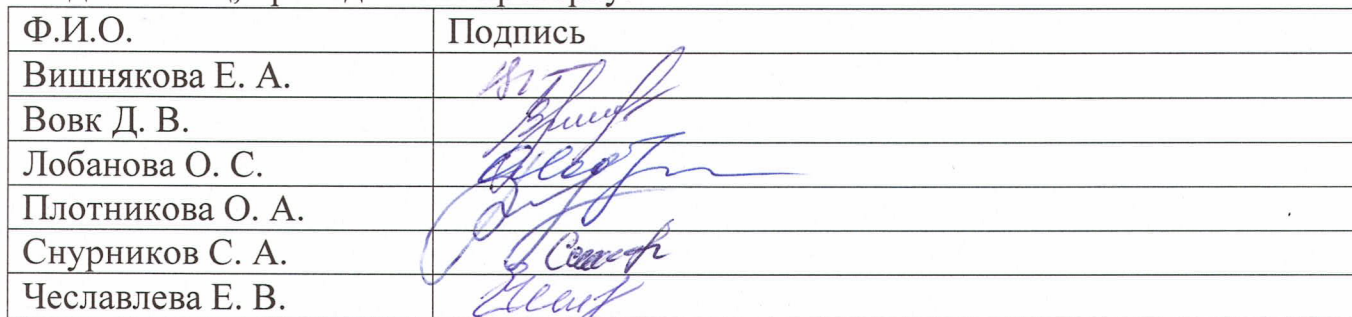 Ф.И.О. Подпись
Вишнякова Е. А.
Вовк Д. В.
Лобанова О. С.
Плотникова О. А.
Снурников С. А.
Чеславлева Е. В.